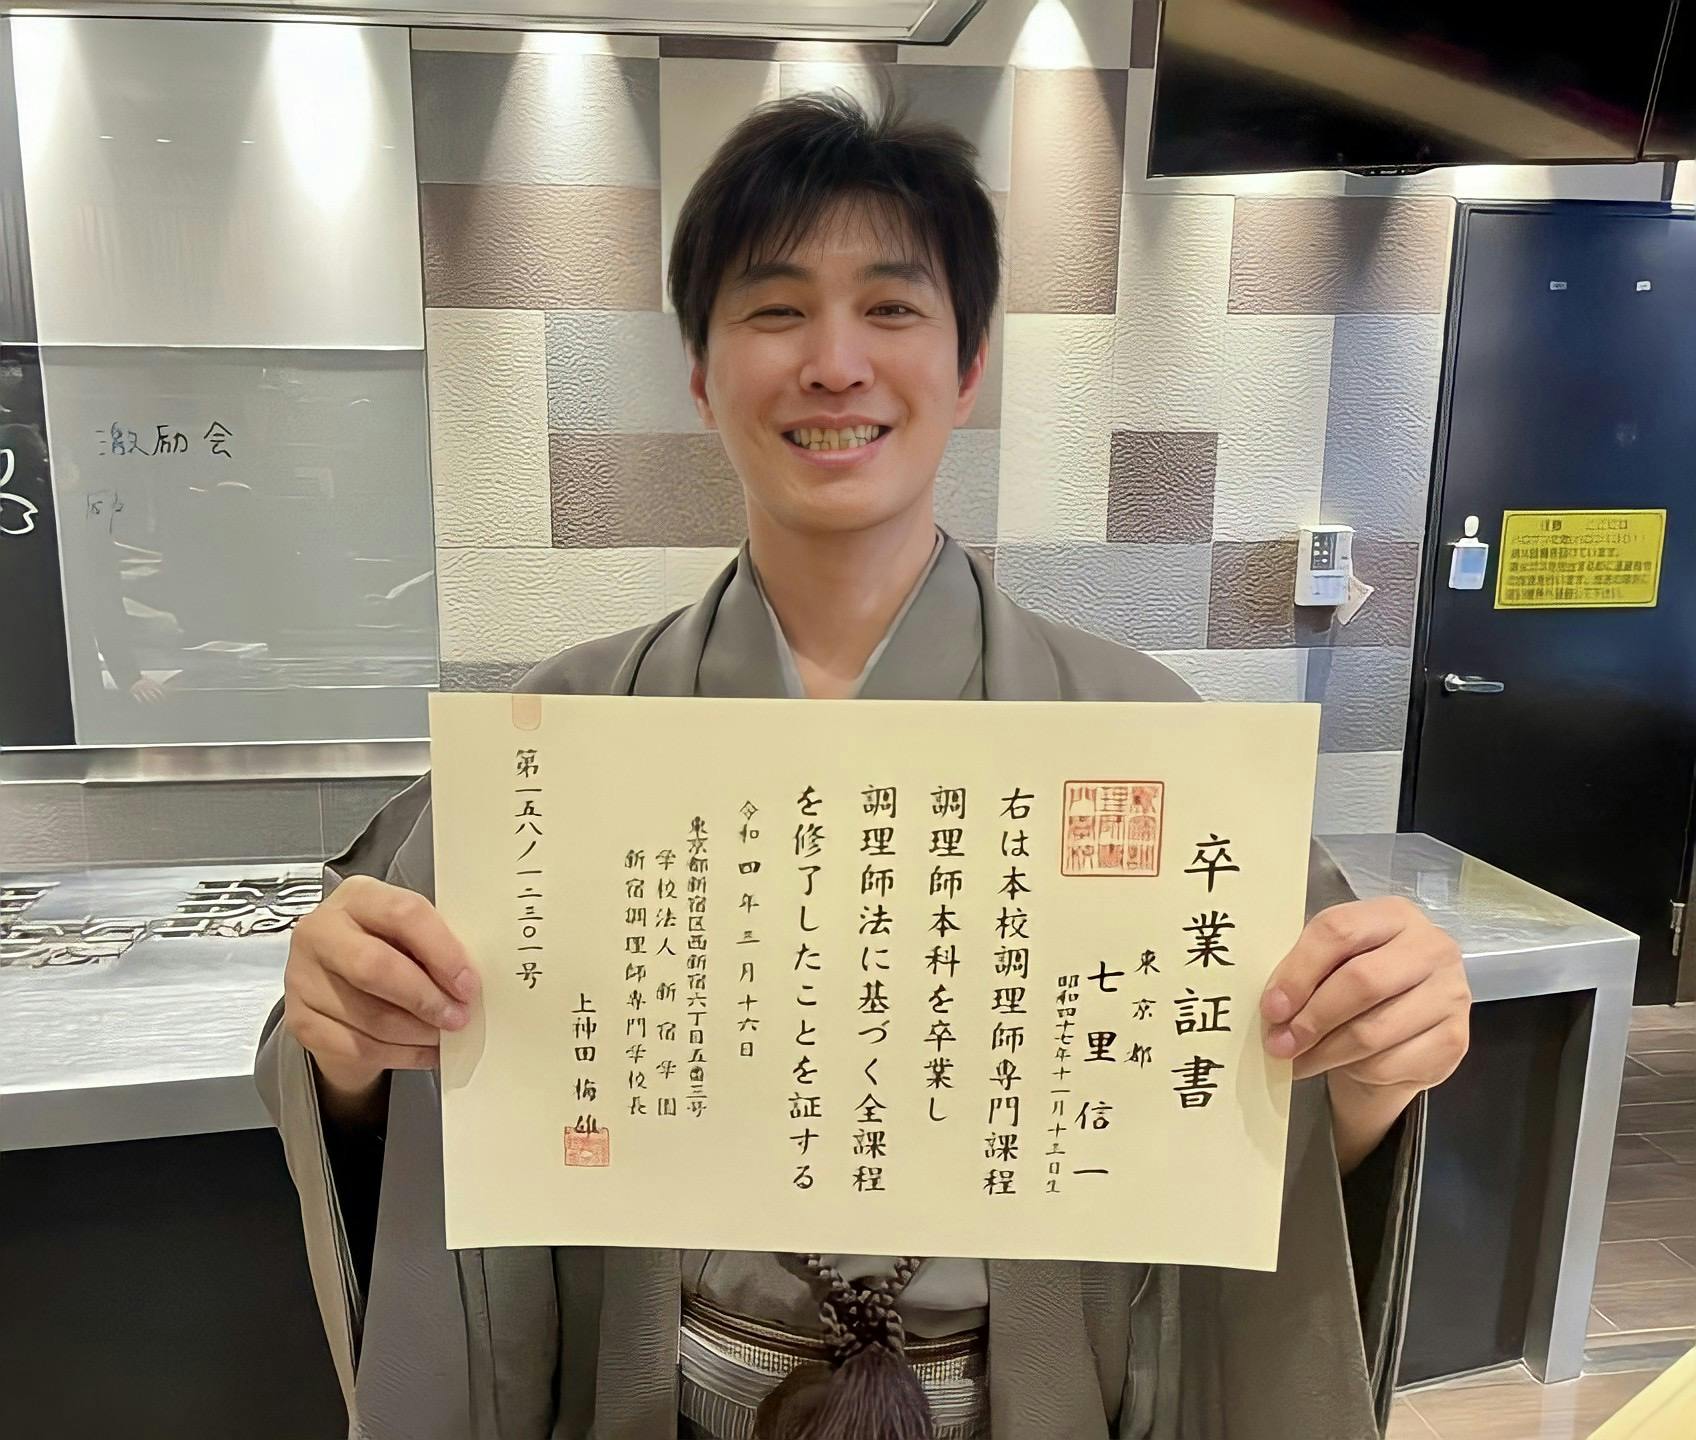 卒業証書
東京都
七里信一
昭和四十七年十一月十三日生
右は本校調理師専門課程
調理師本科を卒業し
調理師法に基づく全課程
を修了したことを証する
令和四年三月十六日
東京都新宿区西新宿六丁目五番三号
学校法人 新宿学園
新宿調理師専門学校長
上神田 梅雄
第一五八ノ一二三〇一号
激励会